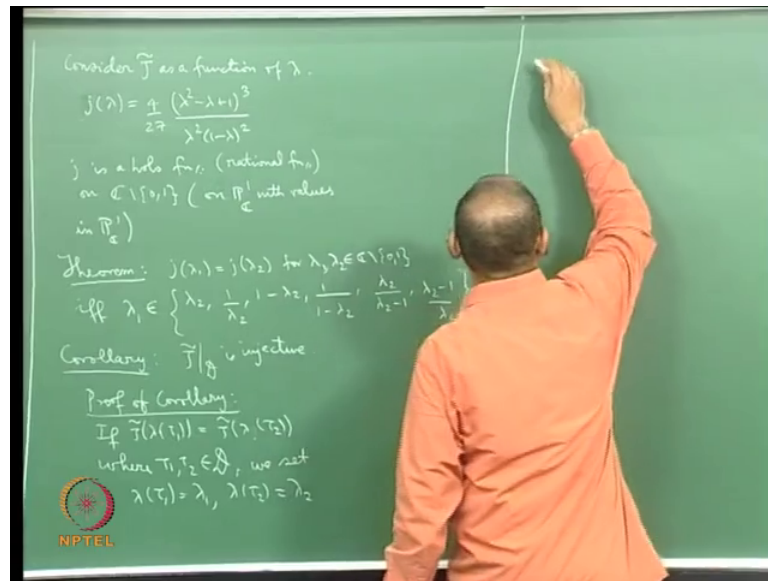 Consider J̃ as a function of λ.
j(λ) = 4/27 (λ²-λ+1)³ / λ²(1-λ)²
j is a holo fn. (rational fn.)
on ℂ\{0,1} (on ℙ¹_ℂ with values
in ℙ¹_ℂ)
Theorem: j(λ₁) = j(λ₂) for λ₁,λ₂∈ℂ\{0,1}
iff λ₁ ∈ { λ₂, 1/λ₂, 1-λ₂, 1/(1-λ₂), λ₂/(λ₂-1), (λ₂-1)/λ₂
Corollary: J̃|_𝒟 is injective
Proof of Corollary:
If J̃(λ(τ₁)) = J̃(λ(τ₂))
where τ₁,τ₂ ∈ 𝒟, we set
λ(τ₁)=λ₁, λ(τ₂)=λ₂
NPTEL